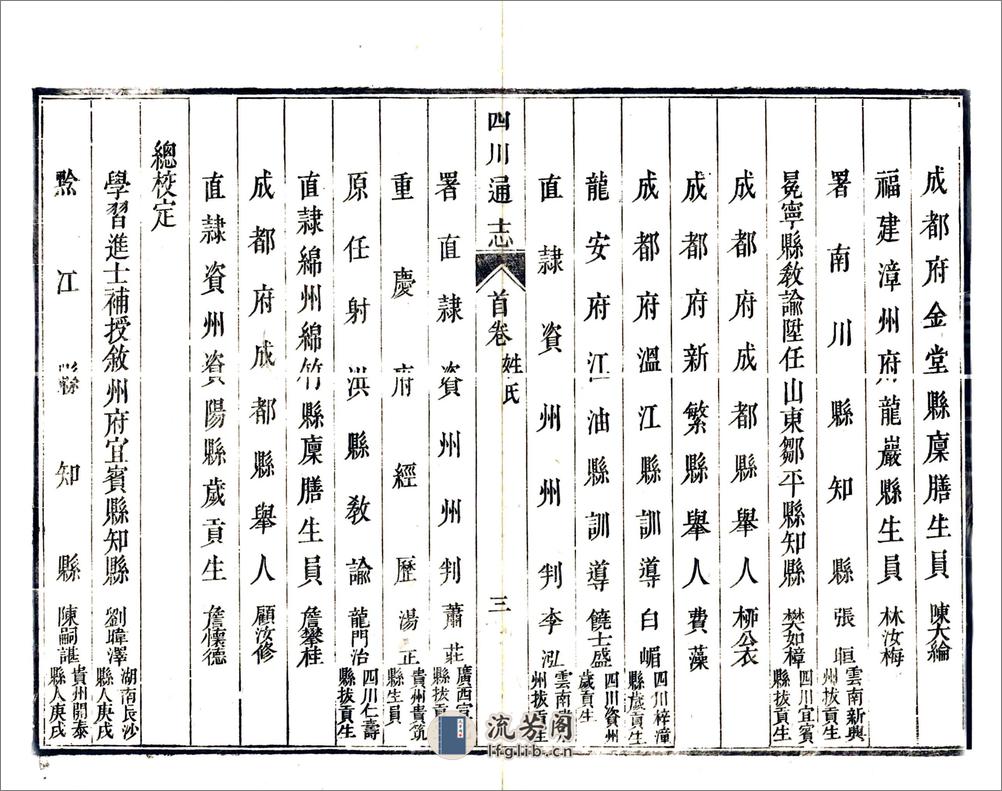 成都府金堂縣廩膳生員陳大綸
福建漳州府龍巖縣生員林汝梅
署南川縣知縣張垣雲南新興州拔貢生
冕寧縣敎諭陞任山東鄒平縣知縣樊如樟四川宜賓縣拔貢生
成都府成都縣舉人栁公衣
成都府新繁縣舉人費藻
成都府溫江縣訓導白嵋四川梓潼縣歲貢生
龍安府江油縣訓導饒士盛四川資州歲貢生
直隸資州州判李泓雲南州拔貢生
四川通志 首卷 姓氏 三
署直隸資州州判蕭莊廣西宣縣拔貢生
重慶府經歷湯正貴州貴筑縣生員
原任射洪縣敎諭龍門治四川仁壽縣拔貢生
直隸綿州綿竹縣廩膳生員詹攀桂
成都府成都縣舉人顧汝修
直隸資州資陽縣歲貢生詹懷德
總校定
學習進士補授敘州府宜賓縣知縣劉暐澤湖南長沙縣人庚戌
黔江縣知縣陳嗣諶貴州開泰縣人庚戌
流芳阁
lfglib.cn